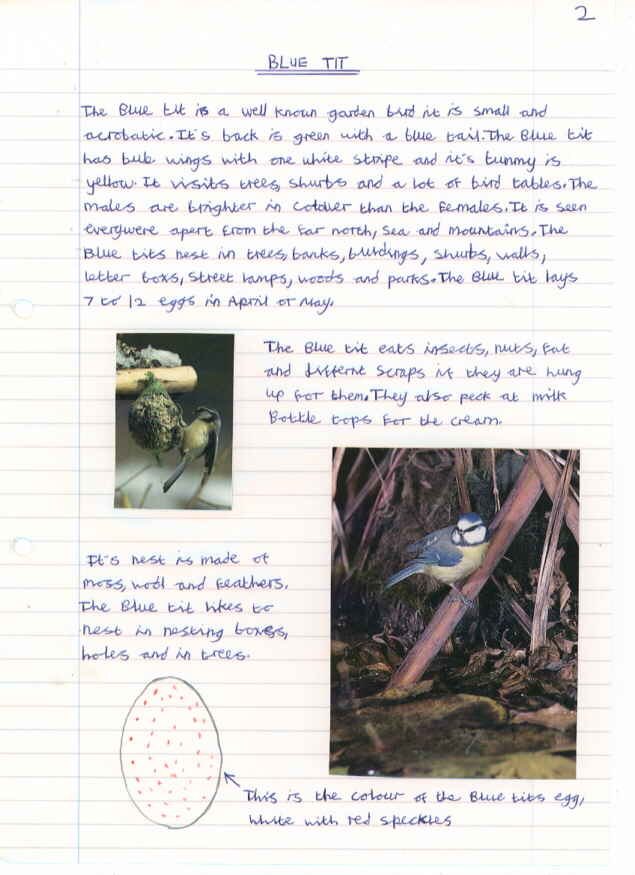 2
BLUE TIT
The Blue tit is a well known garden bird it is small and
acrobatic. It's back is green with a blue tail. The Blue tit
has bule wings with one white stripe and it's tummy is
yellow. It visits trees, shurbs and a lot of bird tables. The
males are brighter in colour than the females. It is seen
everywere apert from the far north, sea and mountains. The
Blue tits nest in trees, banks, buildings, shurbs, walls,
letter boxs, street lamps, woods and parks. The Blue tit lays
7 to 12 eggs in April or May.
The Blue tit eats insects, nuts, fat
and differnt scraps if they are hung
up for them. They also peck at milk
Bottle tops for the cream.
It's nest is made of
moss, wool and feathers.
The Blue tit likes to
nest in nesting boxes,
holes and in trees.
This is the colour of the Blue tits egg,
white with red speckles